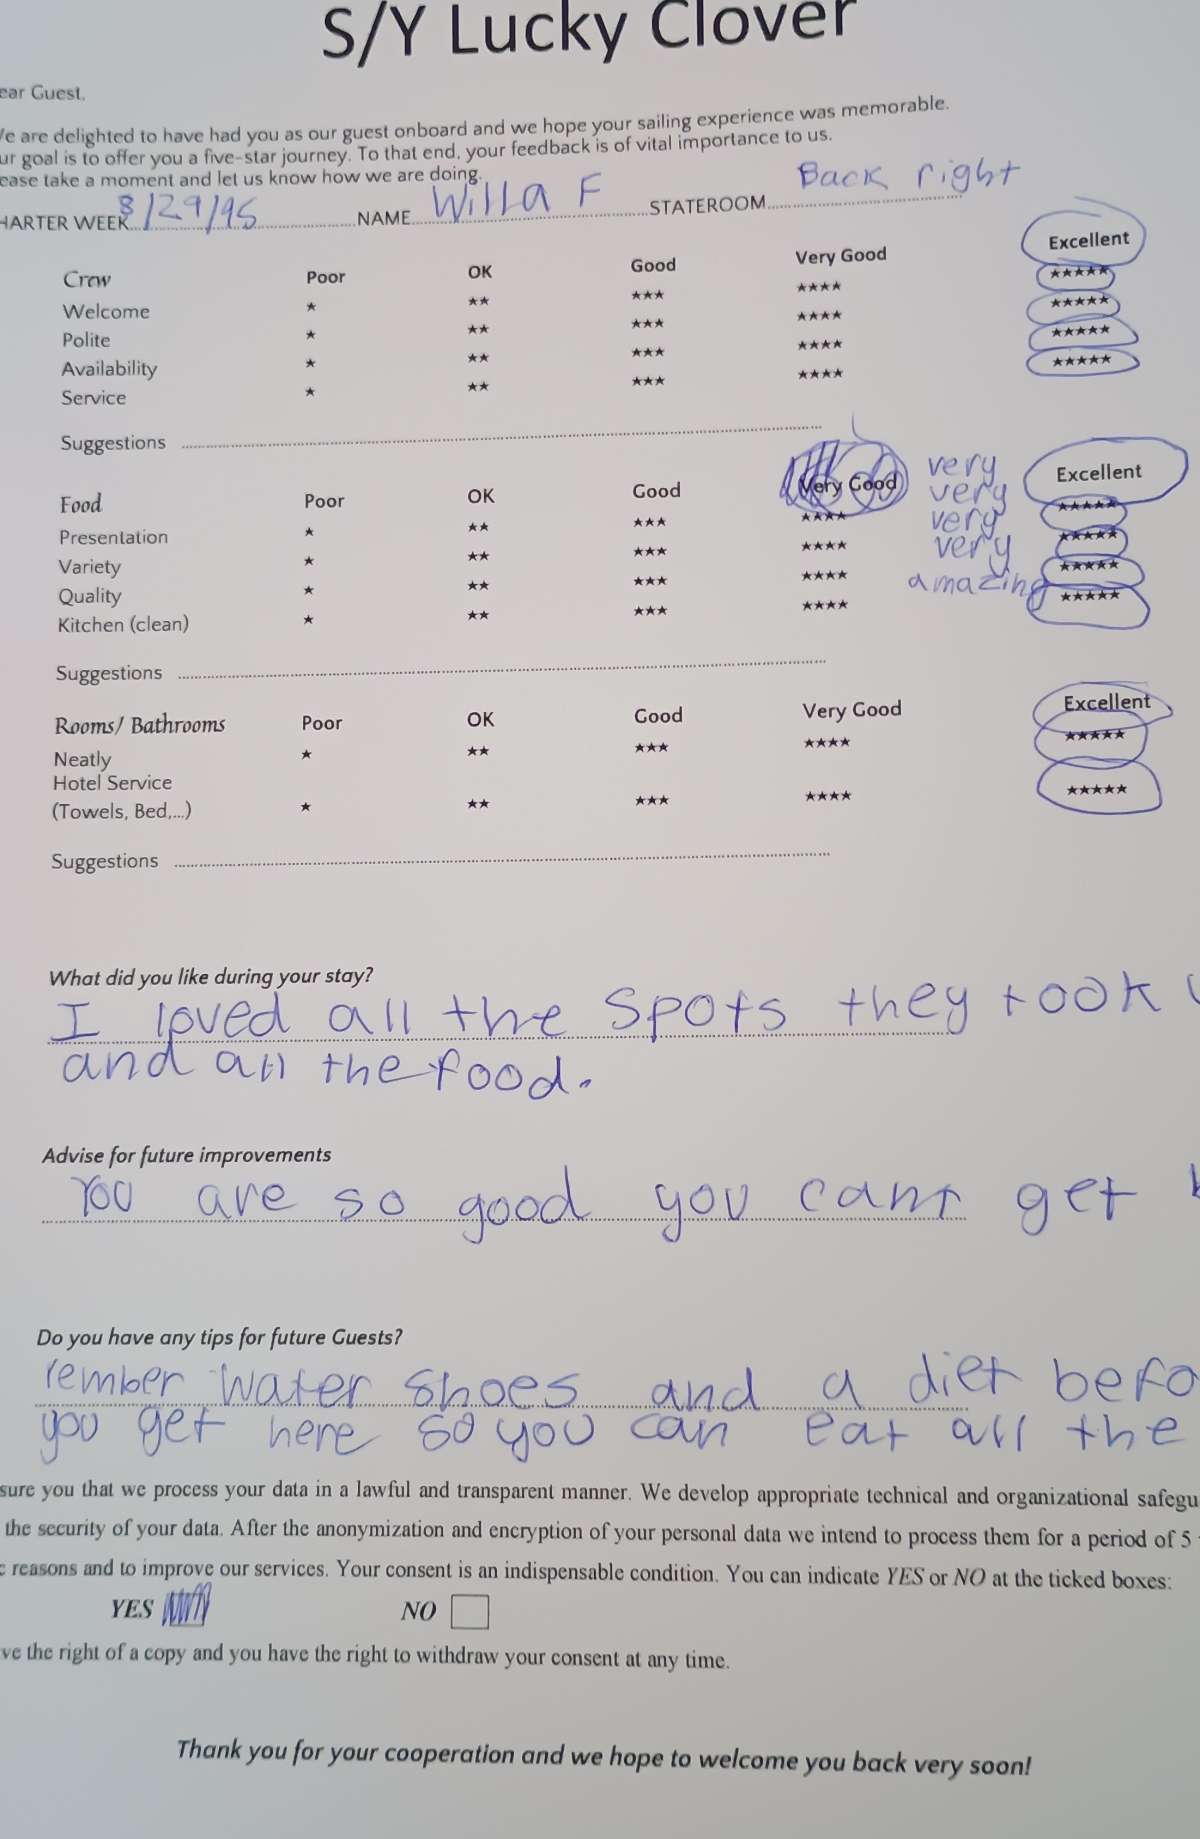 S/Y Lucky Clover
ear Guest,
We are delighted to have had you as our guest onboard and we hope your sailing experience was memorable.
ur goal is to offer you a five-star journey. To that end, your feedback is of vital importance to us.
ease take a moment and let us know how we are doing.
HARTER WEEK 8/29/95 NAME Willa F STATEROOM Back right
Crew Poor OK Good Very Good Excellent
Welcome ★ ★★ ★★★ ★★★★ ★★★★★
Polite ★ ★★ ★★★ ★★★★ ★★★★★
Availability ★ ★★ ★★★ ★★★★ ★★★★★
Service ★ ★★ ★★★ ★★★★ ★★★★★
Suggestions
Food Poor OK Good Very Good very very very very amazing Excellent
Presentation ★ ★★ ★★★ ★★★★ ★★★★★
Variety ★ ★★ ★★★ ★★★★ ★★★★★
Quality ★ ★★ ★★★ ★★★★ ★★★★★
Kitchen (clean) ★ ★★ ★★★ ★★★★ ★★★★★
Suggestions
Rooms/ Bathrooms Poor OK Good Very Good Excellent
Neatly ★ ★★ ★★★ ★★★★ ★★★★★
Hotel Service
(Towels, Bed,...) ★ ★★ ★★★ ★★★★ ★★★★★
Suggestions
What did you like during your stay?
I loved all the spots they took
and all the food.
Advise for future improvements
You are so good you cant get
Do you have any tips for future Guests?
rember water shoes and a diet befo
you get here so you can eat all the
sure you that we process your data in a lawful and transparent manner. We develop appropriate technical and organizational safegu
the security of your data. After the anonymization and encryption of your personal data we intend to process them for a period of 5
c reasons and to improve our services. Your consent is an indispensable condition. You can indicate YES or NO at the ticked boxes:
YES NO
ve the right of a copy and you have the right to withdraw your consent at any time.
Thank you for your cooperation and we hope to welcome you back very soon!